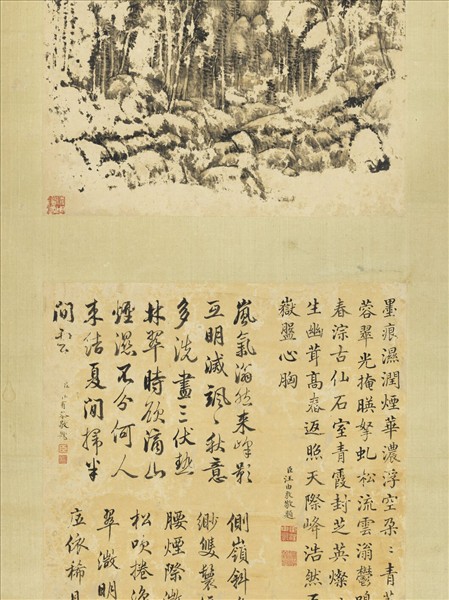 墨痕濕潤煙華濃浮空朶〻青芙
蓉翠光掩暎拏虬松流雲滃鬱鳴
春淙古仙石室青霞封芝英燦
生幽茸高舂返照天際峰浩然
嶽盤心胸
臣汪由敦敬題
嵐氣滃然來峰影
互明滅颯〻秋意
多洗盡三伏熱
林翠時欲滴山
煙濕不分何人
來結夏閒掃半
間
側嶺斜
緲雙鬟
腰煙際
松吹捲
翠微明
依稀